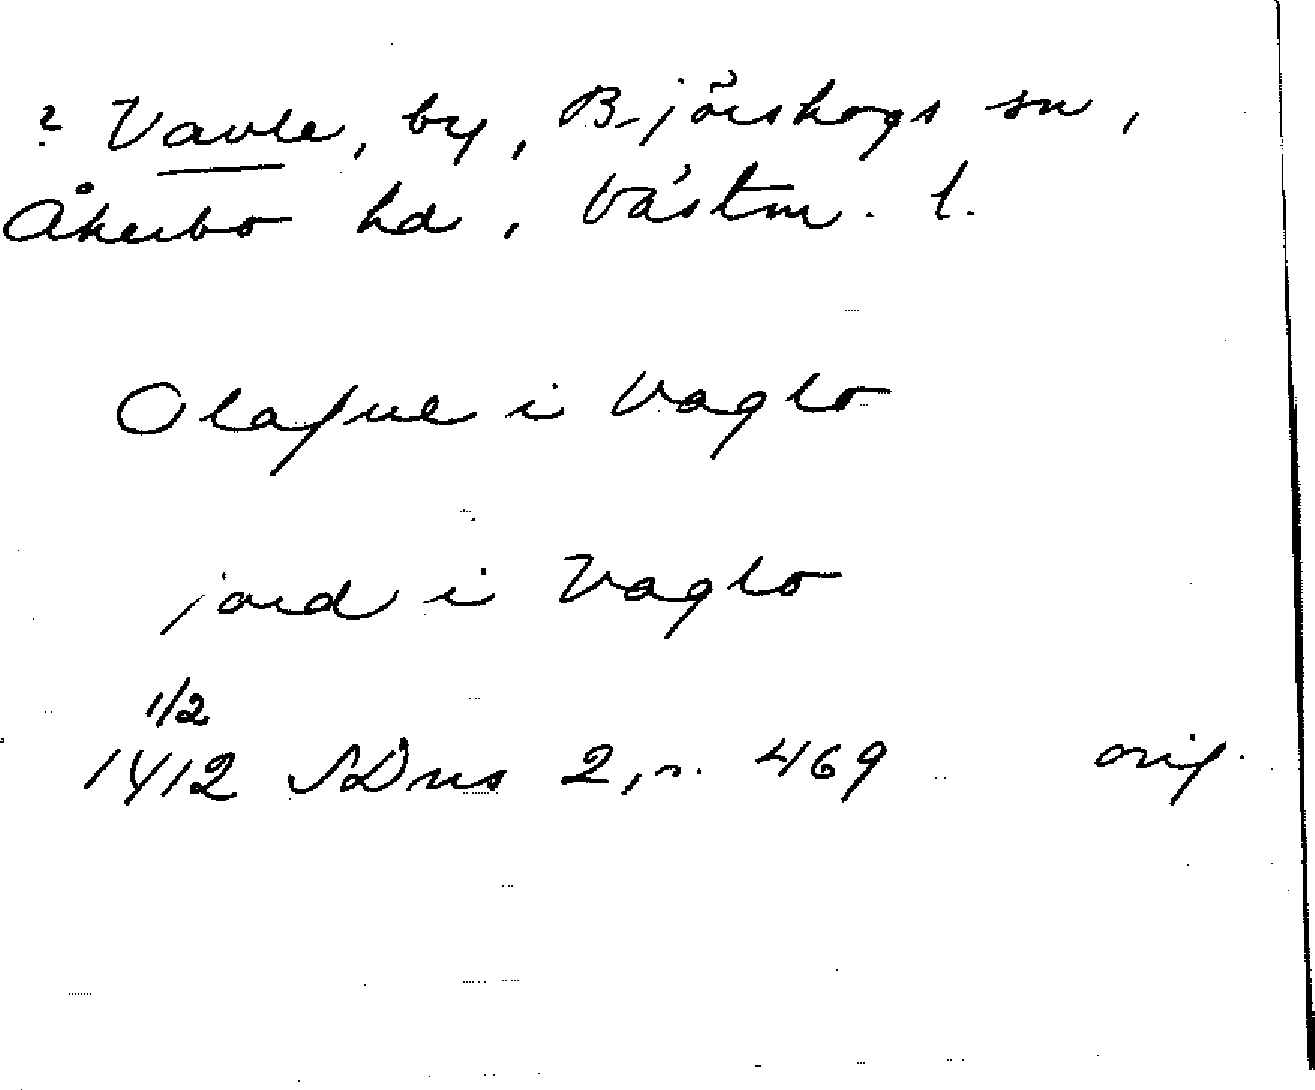 ? Vavle, by, Björskogs sn,
Åkerbo hd, Västm. l.
Olafue i Vaglo
jord i Vaglo
1/2
1412 SDns 2, n. 469 orig.